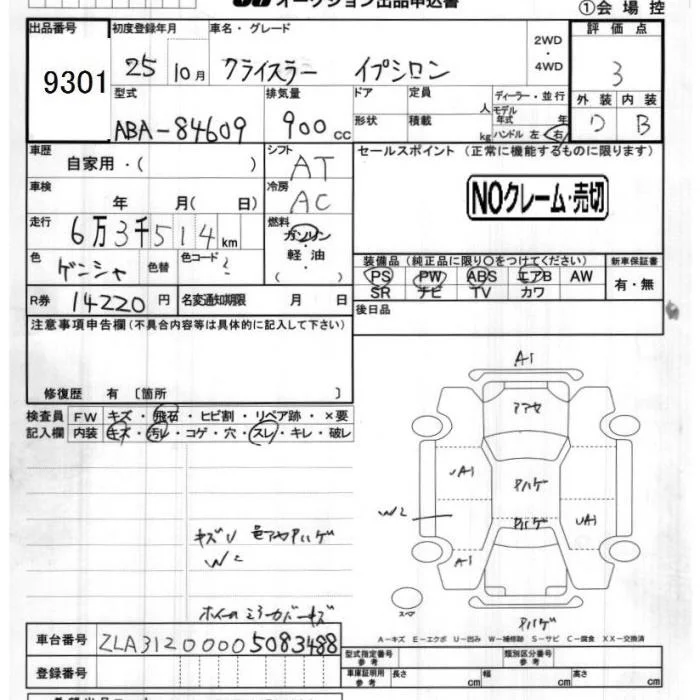 オークション出品申込書
①会場控
出品番号 初度登録年月 車名・グレード 評価点
9301 25 10月 クライスラー イプシロン 2WD・4WD 3
型式 排気量 ドア 定員 人 ディーラー・並行 外装 内装
ABA-84609 900cc 形状 積載 kg モデル年式 年 ハンドル 左 右 B
車歴 シフト セールスポイント (正常に機能するものに限ります)
自家用・( ) AT
車検 冷房
年 月( 日) AC NOクレーム・売切
走行 燃料
6万3千514km ガソリン・軽油・( )
色 色替 色コード 装備品 (純正品に限り○をつけてください) 新車保証書
ゲンシャ PS PW ABS エアB AW 有・無
SR ナビ TV カワ
R券 14220円 名変通知期限 月 日 後日品
注意事項申告欄 (不具合内容等は具体的に記入して下さい)
修復歴 有 〔箇所 〕
検査員 FW キズ・飛石・ヒビ割・リペア跡・×要
記入欄 内装 キズ・汚レ・コゲ・穴・スレ・キレ・破レ
A1
UA1 ハゲ
W2 UA1
A1
キズU
W2
スペア
車台番号 ZLA31200005083488
登録番号
A-キズ E-エクボ U-凹み W-補修跡 S-サビ C-腐食 XX-交換済
型式指定番号 参考 類別区分番号 参考
車庫証明用 参考 長さ cm 幅 cm 高さ cm